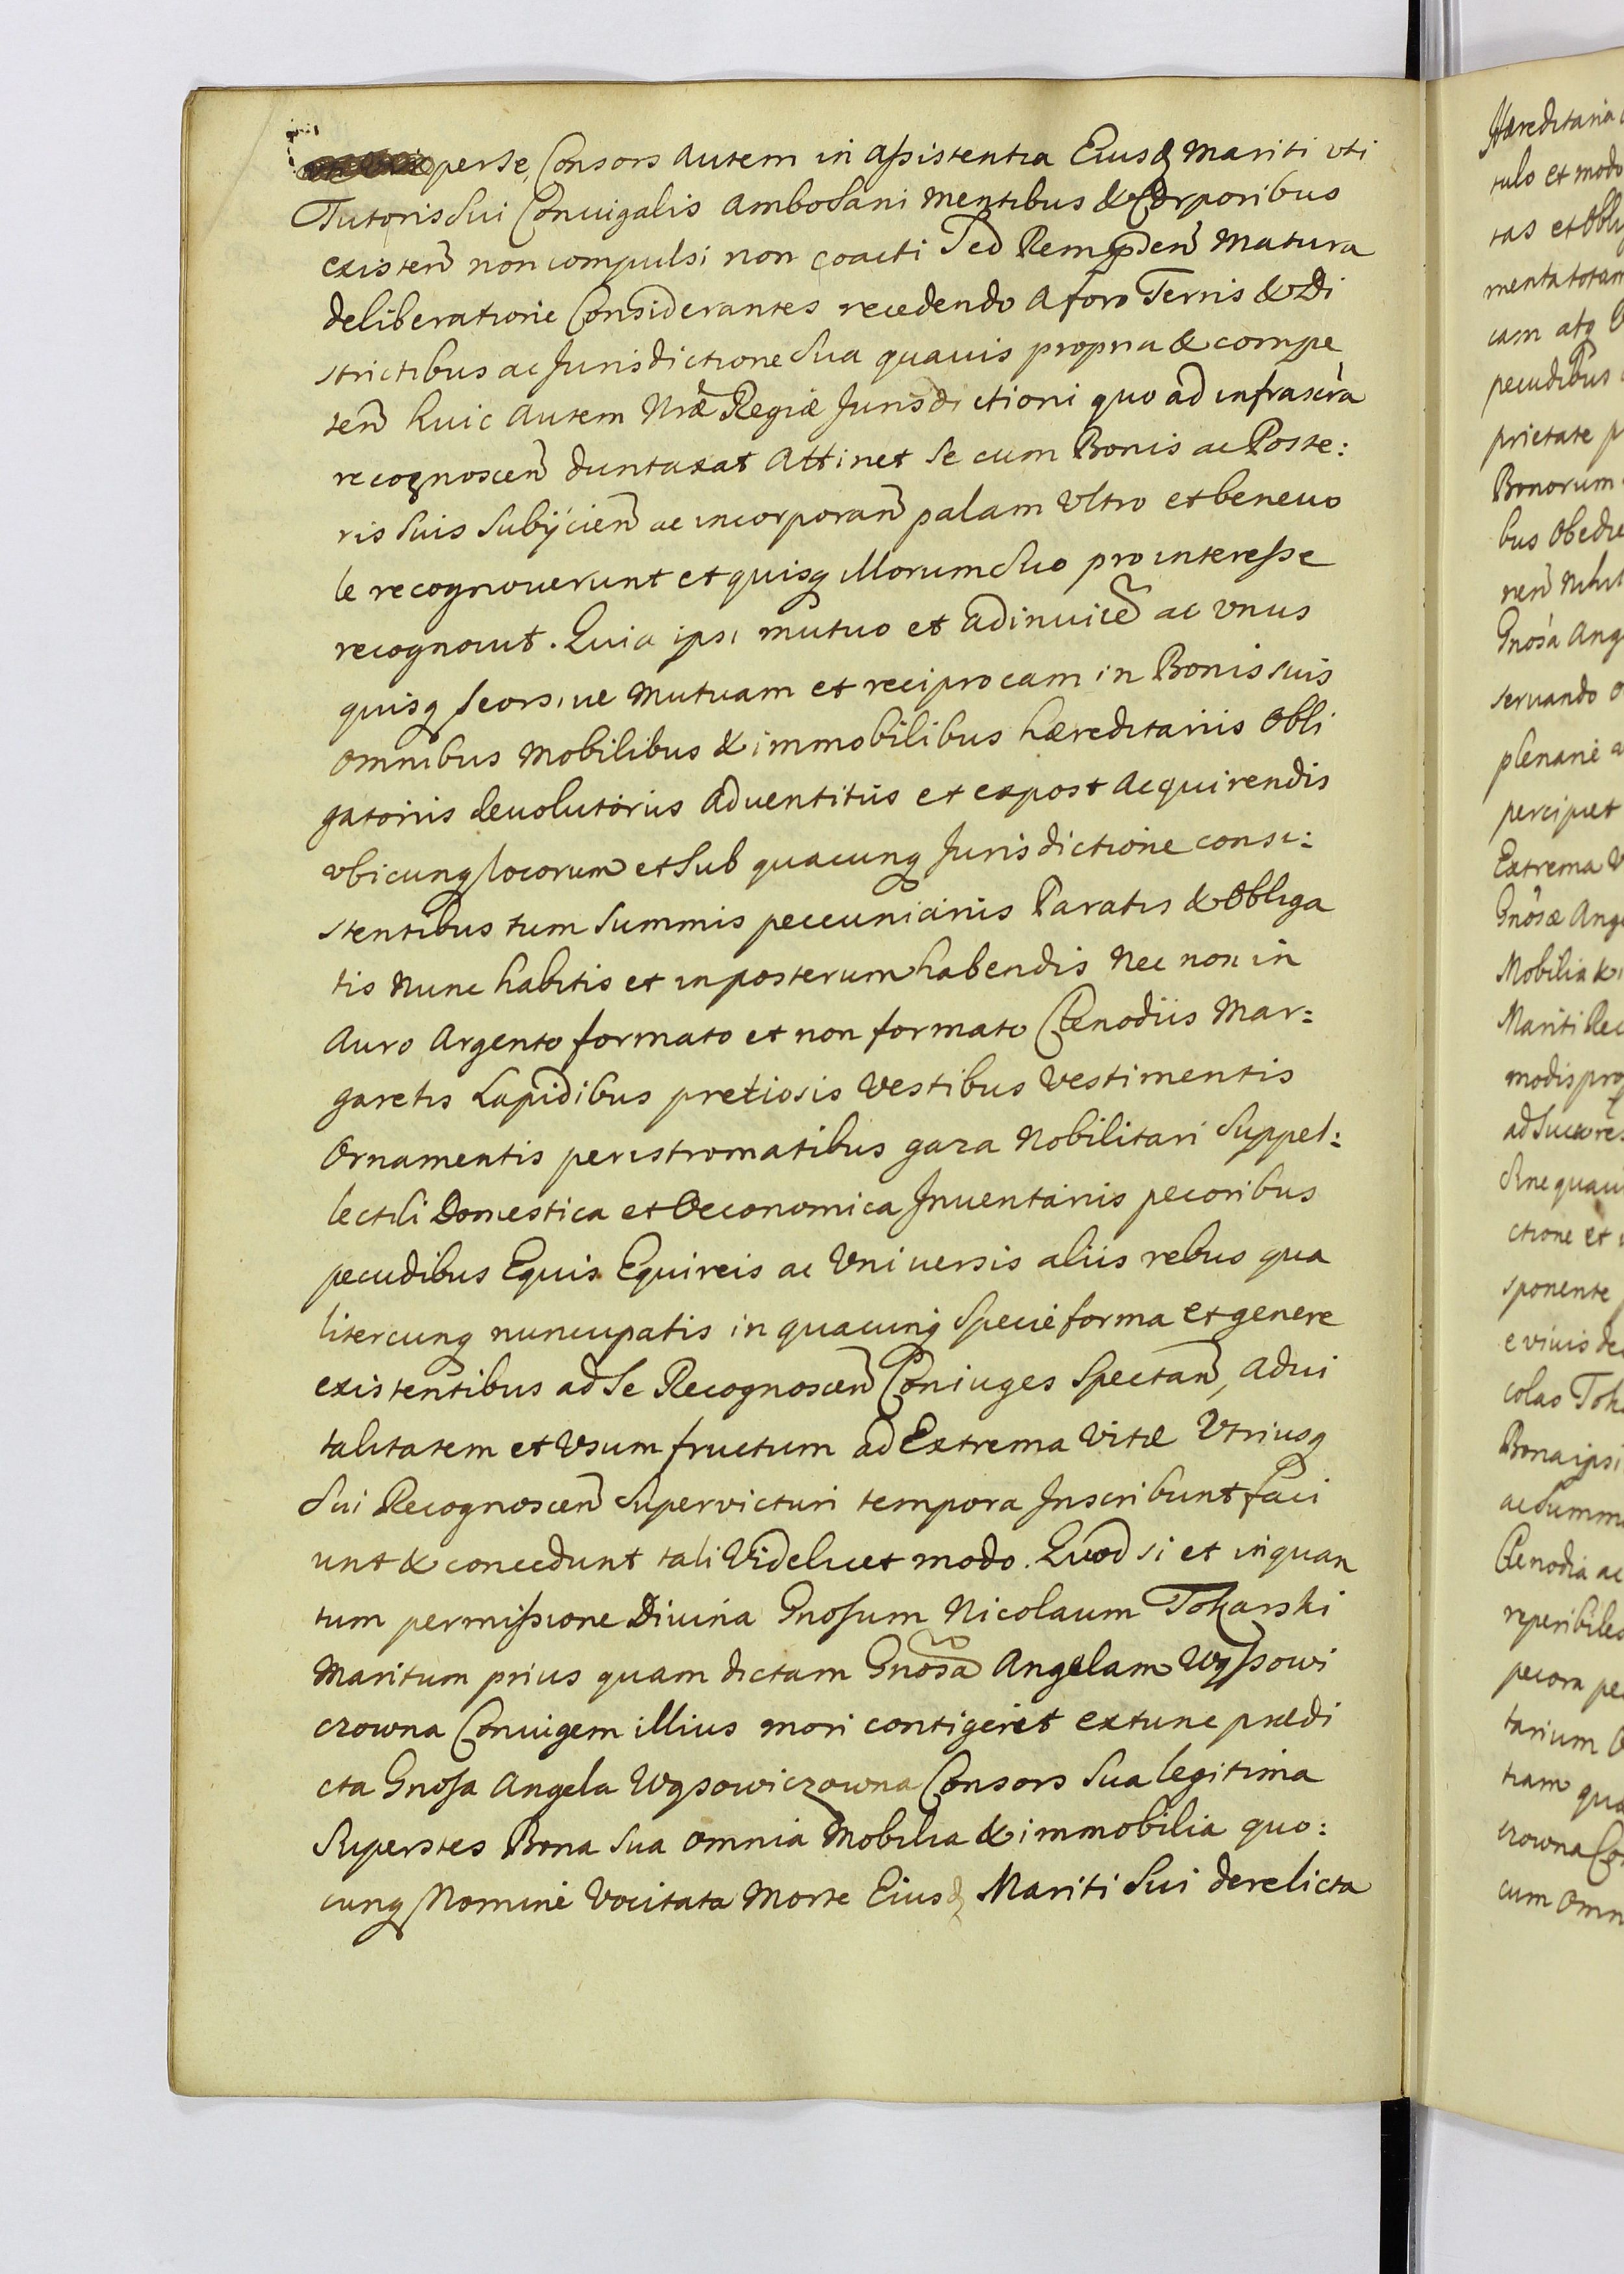 per se, Consors autem in assistentia Eiusq Mariti uti
Tutoris Sui Coniugalis ambo Sani mentibus & Corporibus
existen̄ non compulsi non coacti Sed matura
deliberatione Considerantes recedendo a foro Terris & Di
strictibus ac Jurisdictione Sua quauis propria & compe
ten̄ huic autem Nræ Regiæ Jurisdictioni quo ad infrascra
recognoscen̄ duntaxat attinet Se cum Bonis ac Poste:
ris Suis Subijcien̄ ac incorporan̄ palam Ultro et beneuo
le recognouerunt et quisq illorum Suo pro interesse
recognouit. Quia ipsi mutuo et adinuicē ac unus
quisq seorsiue Mutuam et reciprocam in Bonis suis
omnibus Mobilibus & immobilibus hæreditariis Obli
gatoriis deuolutoriis aduentitiis et expost acquirendis
ubicunq locorum et Sub quacunq Jurisdictione consi:
stentibus tum Summis peccuniariis Paratis & Obliga
tis Nunc habitis et in posterum habendis Nec non in
Auro Argento formato et non formato Clenodiis Mar:
garetis Lapidibus pretiosis Vestibus Vestimentis
Ornamentis peristromatibus gaza Nobilitari Suppel:
lectili Domestica et Oeconomica Inuentariis pecoribus
pecudibus Equis Equireis ac Uniuersis aliis rebus qua
litercunq nuncupatis in quacunq Specie forma et genere
existentibus ad Se Recognoscen̄ Coniuges Spectan̄, adui
talitatem et Usumfructum ad Extrema Vitæ Utriusq
Sui Recognoscen̄ Supervicturi tempora Inscribunt faci
unt & concedunt tali Videlicet modo. Quod si et inquan
tum permissione Diuina Gnosum Nicolaum Tokarski
Maritum prius quam dictam Gnosã Angelam Wyssowi
czowna Coniugem illius mori contigerit extunc prædi
cta Gnosa Angela Wysowiczowna Consors Sua legitima
Superstes Bona Sua omnia Mobilia & immobilia quo:
cunq Nomine Vocitata Morte Eiusq Mariti Sui derelicta
Hæreditaria
tulo et modo
tas et Obli
menta totam
cam atq
pecudibus
prietate
Bonorum
bus Obedie
nen̄ Nihil
Gnosa Ang
seruando
plenarie
percipiet
Extrema
Gnosæ Ang
Mobilia &
Mariti Rec
modis pro
ad Succores
Sine quaui
ctione et
sponente
e viuis de
colao Toka
Bona ipsi
ac Summ
Clenodia ac
reperibiles
pecora pe
tarium
tiam qua
czowna Co
cum omn